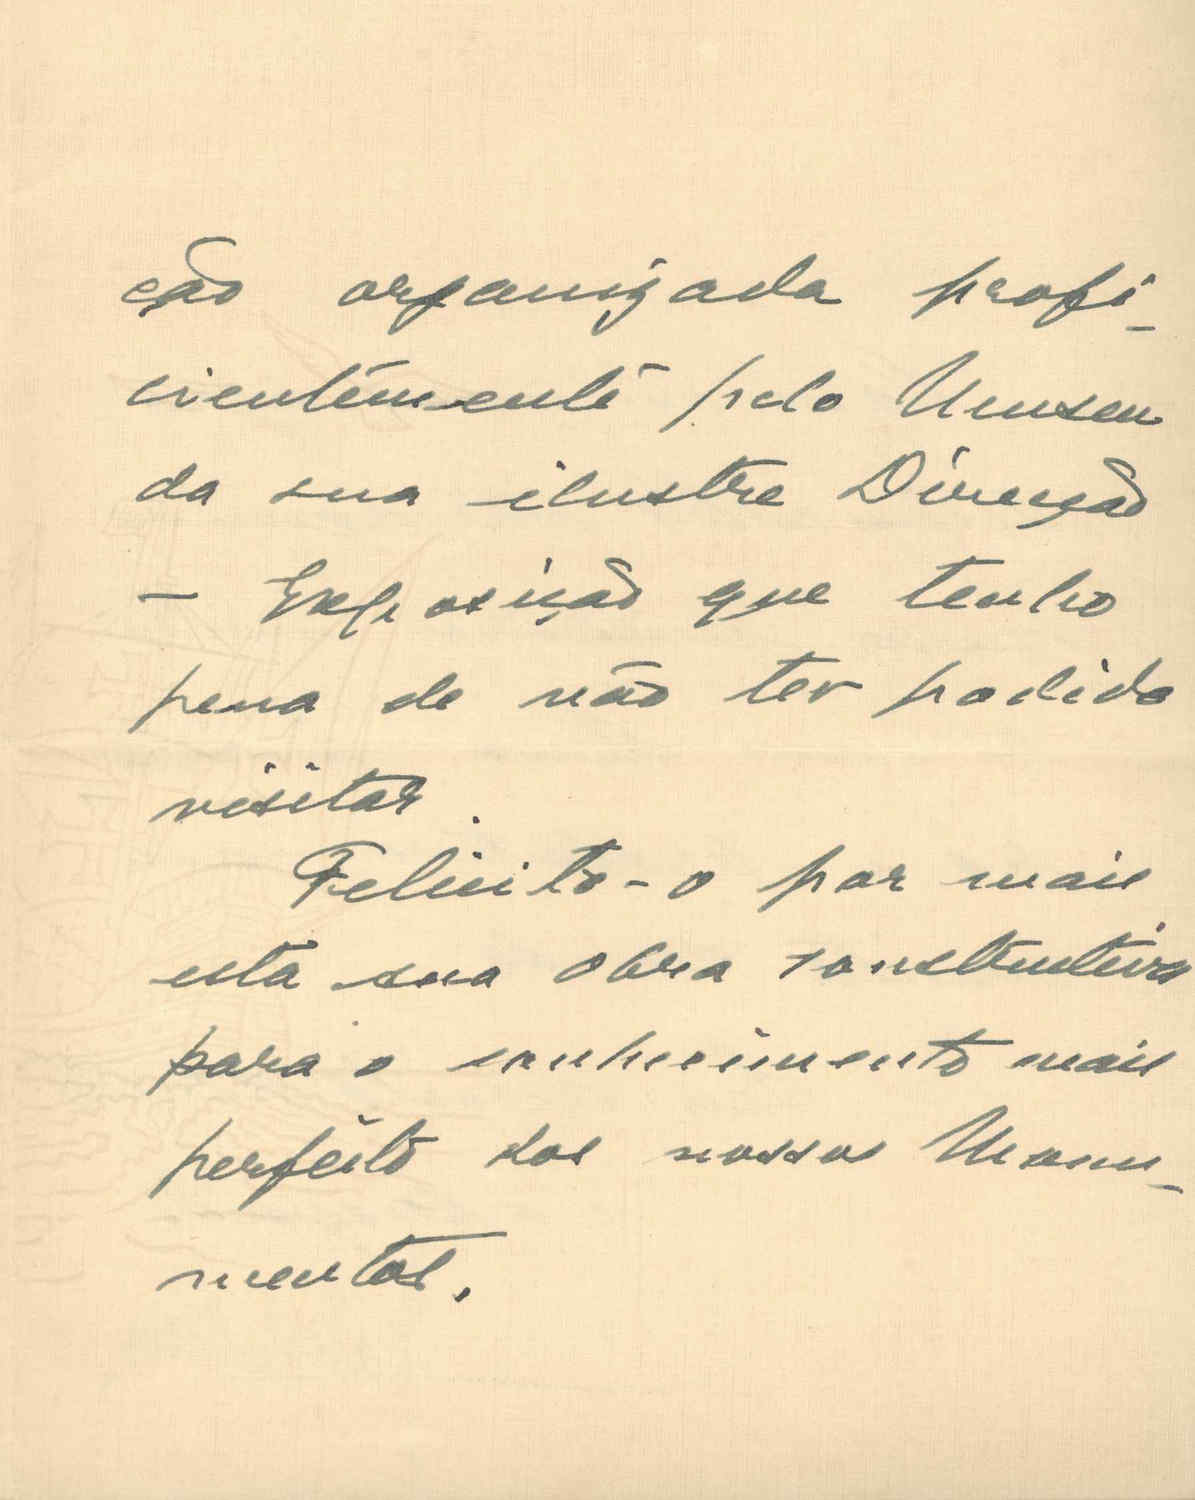 ção organizada profi-
cientemente pelo Museu
da sua ilustre Direcção
- Exposição que tenho
pena de não ter podido
visitar.
Felicito-o por mais
esta sua obra construtiva
para o conhecimento mais
perfeito dos nossos Monu-
mentos.